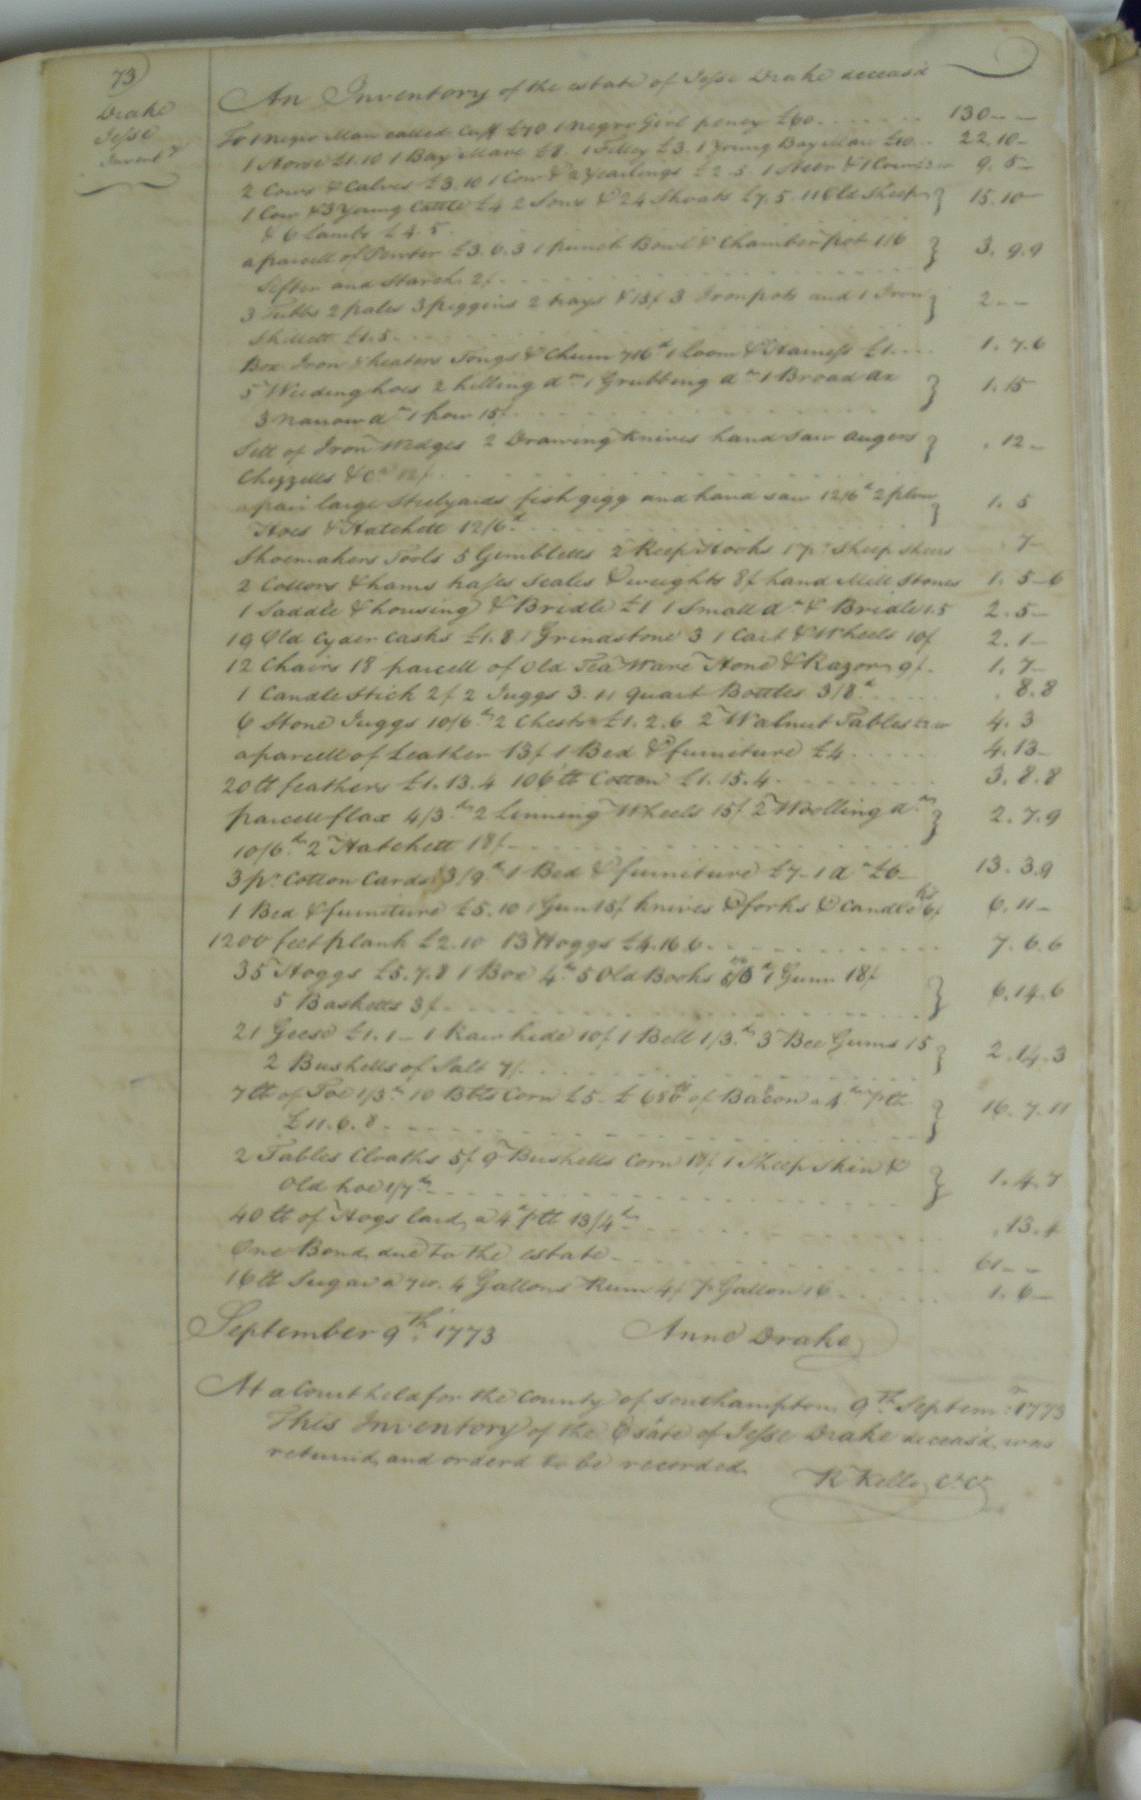 73
Drake
Jesse
Invent.y
An Inventory of the estate of Jesse Drake deceas'd
To 1 Negro Man called Cuff £70 1 Negro Girl peney £60 130 - -
1 Horse £1.10 1 Bay Mare £8. 1 Filley £3. 1 Young Bay Mare £10 22.10 -
2 Cows & Calves £3.10 1 Cow & 2 Yearlings £2.5 1 Steer & 1 Cow 9. 5 -
1 Cow & 3 Young Cattle £4 2 Sows & 24 Shoats £7.5. 11 Old Sheep } 15.10 -
& 6 lambs £4.5.
a parcell of Pewter £3.6.3 1 punch Bowl & Chamber pot 1/6 } 3. 9.9
Sifter and Starch 2/
3 Tubbs 2 pales 3 piggins 2 trays &c 13/ 3 Iron pots and 1 Iron } 2 - -
Skillett £1.5
Box Iron & heaters Tongs & Churn 7/6d 1 loom & Harness £1 1. 7.6
5 Weeding hoes 2 hilling do 1 Grubbing do 1 Broad ax } 1.15
3 narrow do 1 frow 15/
Sett of Iron Wedges 2 Drawing knives hand Saw augers } . 12 -
Chizzells &Ca 12/
a pair large Steelyards fish gigg and hand saw 12/6d 2 plow } 1. 5
Hoes & Hatchett 12/6d
Shoemakers Tools 5 Gimbletts 2 Reep Hooks 1 pr Sheep Shears . 7 -
2 Collors & hams hases Scales & weights 8/ hand Mill Stones 1. 5 - 6
1 Saddle & housing & Bridle £1 1 Small do & Bridle 1.5 2. 5 -
19 Old Cyder Casks £1.8 1 Grindstone 3 1 Cart & Wheels 10/ 2. 1 -
12 Chairs 18 parcell of Old Tea Ware Hone & Razors 9/. 1. 7 -
1 Candle Stick 2/ 2 Juggs 3. 11 quart Bottles 3/8d . 8.8
6 Stone Juggs 10/6d 2 Chests £1.2.6 2 Walnut Tables 4. 3
a parcell of Leather 13/ 1 Bed & furniture £4 4.13 -
20 lb feathers £1.13.4 106 lb Cotton £1.15.4 3.8.8
parcell flax 4/3d 2 Linning Wheels 15/ 2 Woolling do } 2.7.9
10/6d 2 Hatchett 18/
3 pr Cotton Cards 3/9d 1 Bed & furniture £7 - 1 do £6 - 13.3.9
1 Bed & furniture £5.10 1 Gun 15/ knives & forks & Candle 6/ 6.11 -
1200 feet plank £2.10 13 Hoggs £4.16.6 7.6.6
35 Hoggs £5.7.8 1 Box 4d 5 Old Books 1 Gunn 18/ } 6.14.6
5 Basketts 3/
21 Geese £1.1 - 1 Raw hide 10/ 1 Bell 1/3d 3 Bee Gums 15 } 2.14.3
2 Bushells of Salt 7/
7 lb of Toe 1/3d 10 Bbls Corn £5 - £ 680 lb of Bacon a 4d p lb } 16.7.11
£11.6.8
2 Tables Cloaths 5/ 9 Bushells Corn 18/ 1 Sheep Skin & } 1.4.7
Old hoe 1/7d
40 lb of Hogs lard, a 4d p lb 13/4d . 13.4
One Bond, due to the estate 61 - -
16 lb Sugar a 7d. 4 Gallons Rum 4/ p Gallon 16 1.6 -
September 9th 1773 Anne Drake
At a Court held for the County of Southampton 9th Septemr 1773
This Inventory of the Estate of Jesse Drake deceas'd, was
returnid, and orderd to be recorded.
R Kello, C.C.